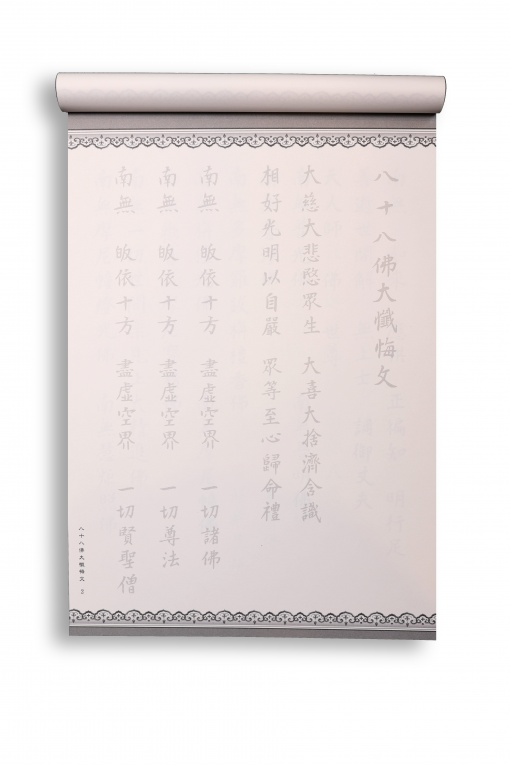 八十八佛大懺悔文
大慈大悲愍眾生 大喜大捨濟含識
相好光明以自嚴 眾等至心歸命禮
南無 皈依十方 盡虛空界 一切諸佛
南無 皈依十方 盡虛空界 一切尊法
南無 皈依十方 盡虛空界 一切賢聖僧
八十八佛大懺悔文